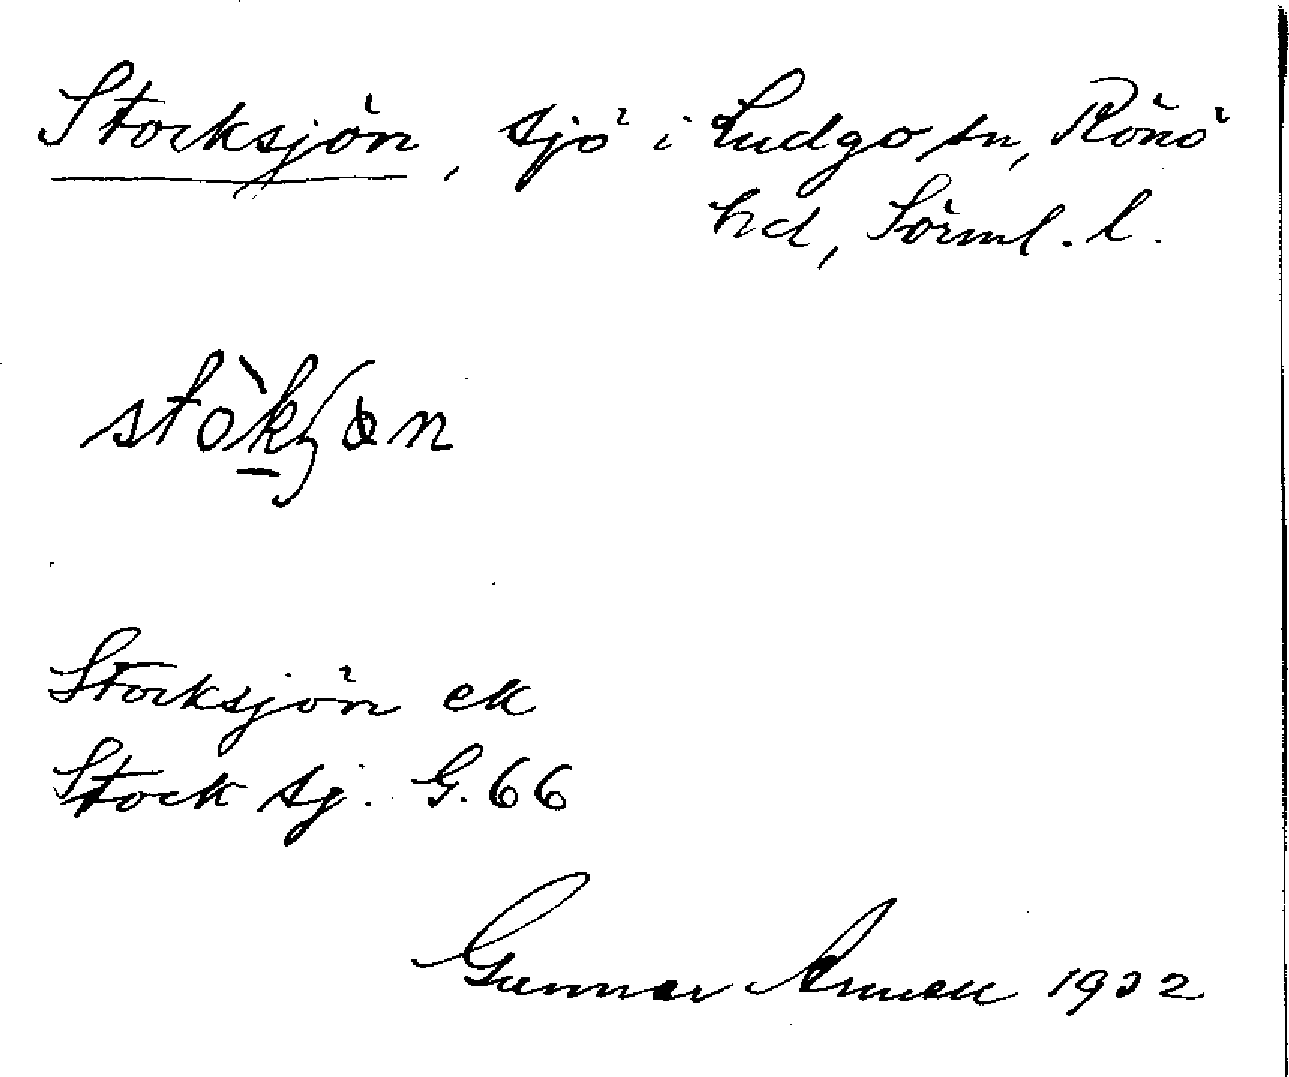 Stocksjön, sjö i Ludgo sn, Rönö
hd, Sörml. l.
Stocksjön ek
Stock sj. G. 66
Gunnar 1932